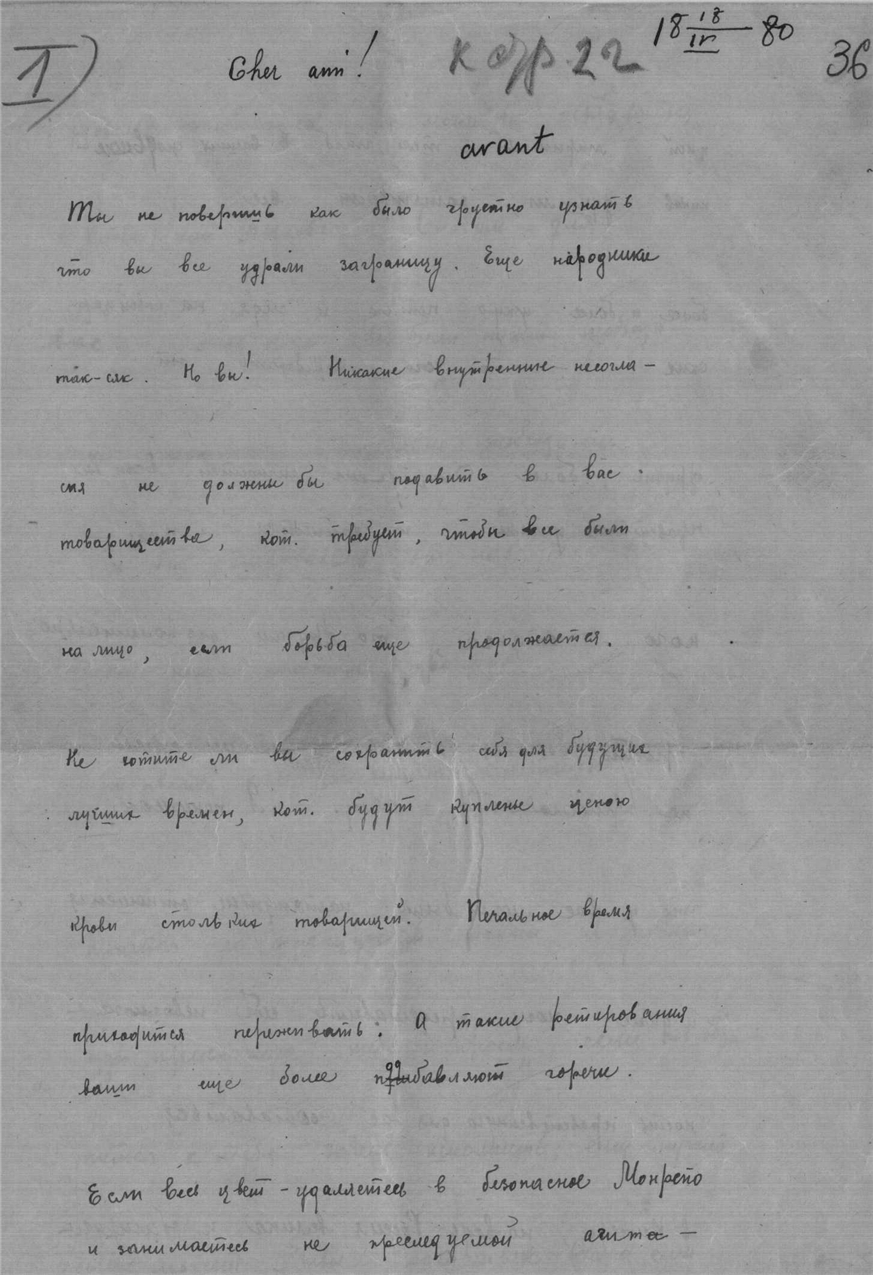 I)
18 18/III 80
36
Cher ami!
avant
Ты не поверишь как было грустно узнать
что вы все удрали заграницу. Еще народники
так-сяк. Но вы! Никакие внутренние несогла-
сия не должны бы подавить в вас
товарищества, кот. требует, чтобы все были
на лицо, если борьба еще продолжается.
Не хотите ли вы сохранить себя для будущих
лучших времен, кот. будут куплены ценою
крови стольких товарищей? Печальное время
приходится переживать. А такие ретирования
ваши еще более прибавляют горечи.
Если весь цвет - удаляетесь в безопасное Монрепо
и занимаетесь не преследуемой агита-